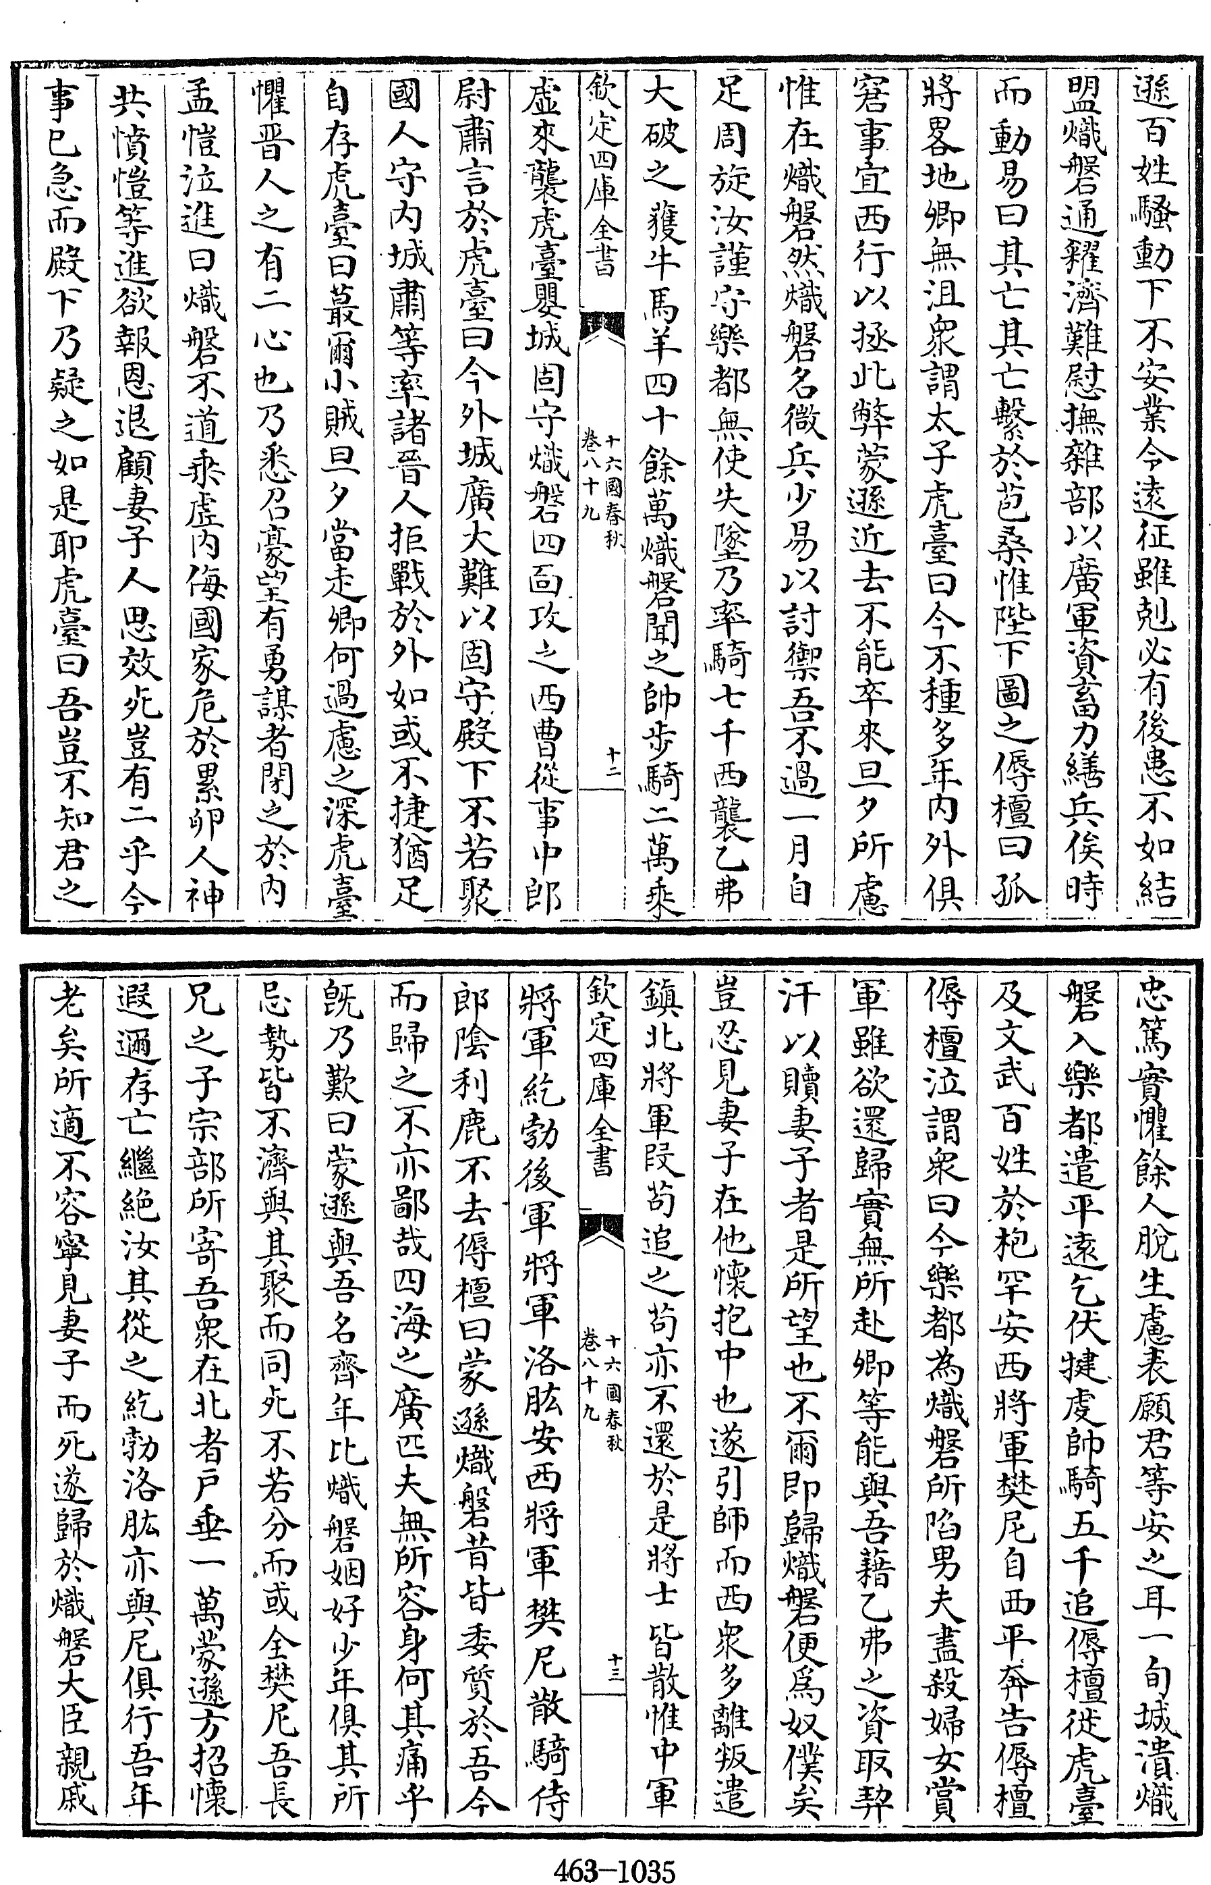 遜百姓騷動下不安業今遠征雖剋必有後患不如結
盟熾磐通糴濟難慰撫雜部以廣軍資畜力繕兵俟時
而動易曰其亡其亡繫於苞桑惟陛下圖之傉檀曰孤
將畧地卿無沮衆謂太子虎臺曰今不種多年內外俱
窘事宜西行以拯此弊蒙遜近去不能卒來旦夕所慮
惟在熾磐然熾磐名微兵少易以討禦吾不過一月自
足周旋汝謹守樂都無使失墜乃率騎七千西襲乙弗
大破之獲牛馬羊四十餘萬熾磐聞之帥步騎二萬乘
欽定四庫全書
十六國春秋
卷八十九
十二
虛來襲虎臺嬰城固守熾磐四面攻之西曹從事中郎
尉肅言於虎臺曰今外城廣大難以固守殿下不若聚
國人守內城肅等率諸晉人拒戰於外如或不捷猶足
自存虎臺曰蕞爾小賊旦夕當走卿何過慮之深虎臺
懼晉人之有二心也乃悉召豪望有勇謀者閉之於內
孟愷泣進曰熾磐不道乘虛內侮國家危於累卵人神
共憤愷等進欲報恩退顧妻子人思效死豈有二乎今
事已急而殿下乃疑之如是耶虎臺曰吾豈不知君之
忠篤實懼餘人脫生慮表願君等安之耳一旬城潰熾
磐入樂都遣平遠乞伏犍虔帥騎五千追傉檀徙虎臺
及文武百姓於枹罕安西將軍樊尼自西平奔告傉檀
傉檀泣謂衆曰今樂都為熾磐所陷男夫盡殺婦女賞
軍雖欲還歸實無所赴卿等能與吾藉乙弗之資取契
汗以贖妻子者是所望也不爾即歸熾磐便爲奴僕矣
豈忍見妻子在他懷抱中也遂引師而西衆多離叛遣
鎮北將軍段苟追之苟亦不還於是將士皆散惟中軍
欽定四庫全書
十六國春秋
卷八十九
十三
將軍紇勃後軍將軍洛肱安西將軍樊尼散騎侍
郎陰利鹿不去傉檀曰蒙遜熾磐昔皆委質於吾今
而歸之不亦鄙哉四海之廣匹夫無所容身何其痛乎
既乃歎曰蒙遜與吾名齊年比熾磐姻好少年俱其所
忌勢皆不濟與其聚而同死不若分而或全樊尼吾長
兄之子宗部所寄吾衆在北者戶垂一萬蒙遜方招懷
遐邇存亡繼絕汝其從之紇勃洛肱亦與尼俱行吾年
老矣所適不容寧見妻子而死遂歸於熾磐大臣親戚
463-1035